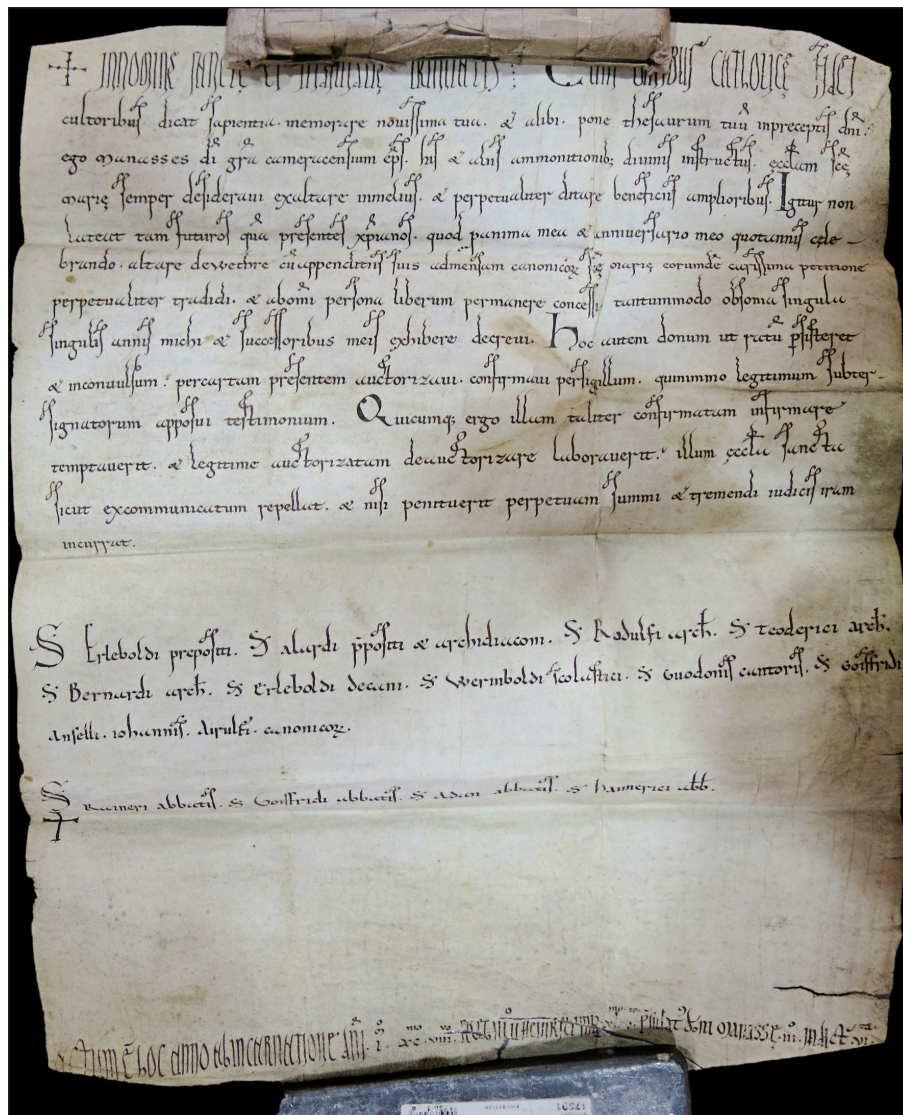 ✝ INNOMINE SANCTE ET INDIVIDUE TRINITATIS : Cum omnibus catholicę fidei
cultoribus dicat sapientia. memorare novissima tua. & alibi. pone thesaurum tuū inpreceptis dn̄i.
ego Manasses dī gr̄a cameracensium ep̄s. his & aliis ammonitionib; divinis instructus. ęccl̄am sc̄ę
marię semper desideravi exaltare inmelius. & perpetualiter ditare beneficiis amplioribus. Igitur non
lateat tam futuros quā presentes xp̄ianos. quod panima mea & anniversario meo quotannis cele-
brando. altare dewethre cū appenditiis suis admensam canonicoꝝ sc̄ę marię eorundē carissima petitione
perpetualiter tradidi. & abom̄i persona liberum permanere concessi. tantummodo obsonia singula
singulis annis michi & successoribus meis exhibere decrevi. Hoc autem donum ut ratū p̄sisteret
& inconvulsum. percartam presentem auctorizavi. confirmavi persigillum. quinimmo legitimum subter-
signatorum apposui testimonium. Quicumq; ergo illam taliter confirmatam infirmare
temptaverit. & legitime auctorizatam deauctorizare laboraverit. illum ęccl̄a sancta
sicut excommunicatum repellat. & nisi penituerit perpetuam summi & tremendi iudicis iram
incurrat.
S Erleboldi prepositi. S Alardi p̄positi & archidiaconi. S Rodulfi arch̄. S Teoderici arch̄.
S Bernardi arch̄. S Erleboldi decani. S Werimboldi scolastici. S Guodonis cantoris. S Goiffridi
Anselli. Iohannis. Airulfi. canonicoꝝ.
S Raineri abbatis. S Goiffridi abbatis. S Adan abbatis. S Haimerici abb̄.
✝
ACTUM Ē HOC ANNO AB INCARNATIONE DN̄I. XC